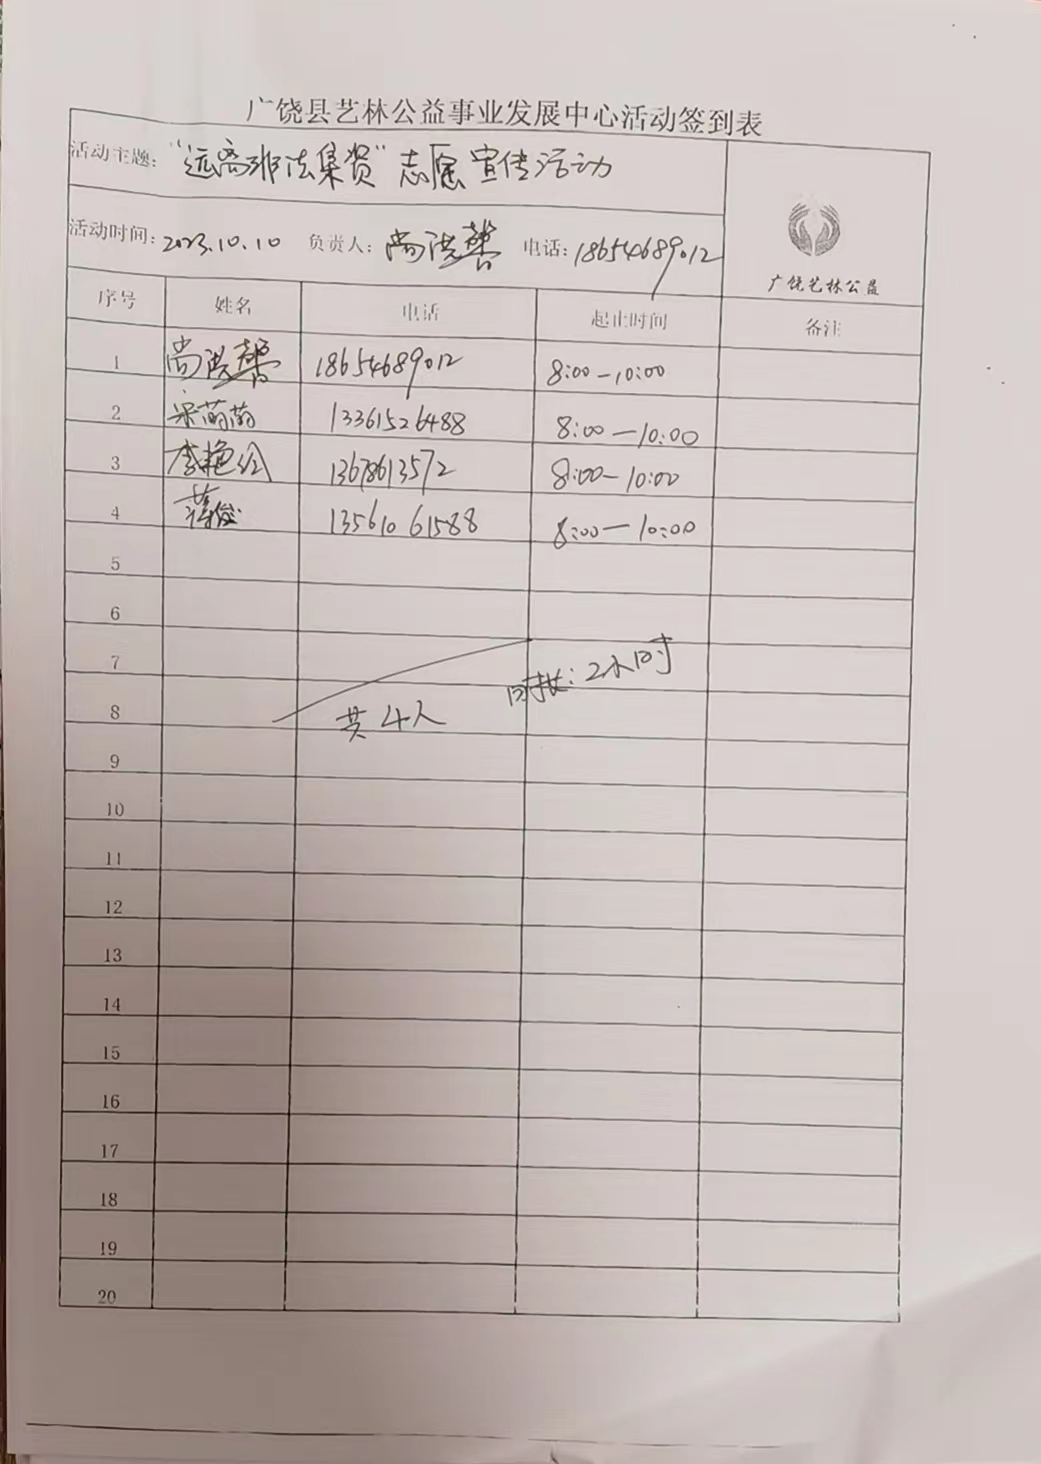 广饶县艺林公益事业发展中心活动签到表
活动主题：“远离非法集资”志愿宣传活动
活动时间：2023.10.10 负责人：尚洪馨 电话：18654689012
广饶艺林公益
序号 姓名 电话 起止时间 备注
1 尚洪馨 18654689012 8:00-10:00
2 宋萌萌 13361526488 8:00-10:00
3 李艳玲 13678613572 8:00-10:00
4 蒋俊 13561061588 8:00-10:00
5
6
7
时长：2小时
8
共4人
9
10
11
12
13
14
15
16
17
18
19
20